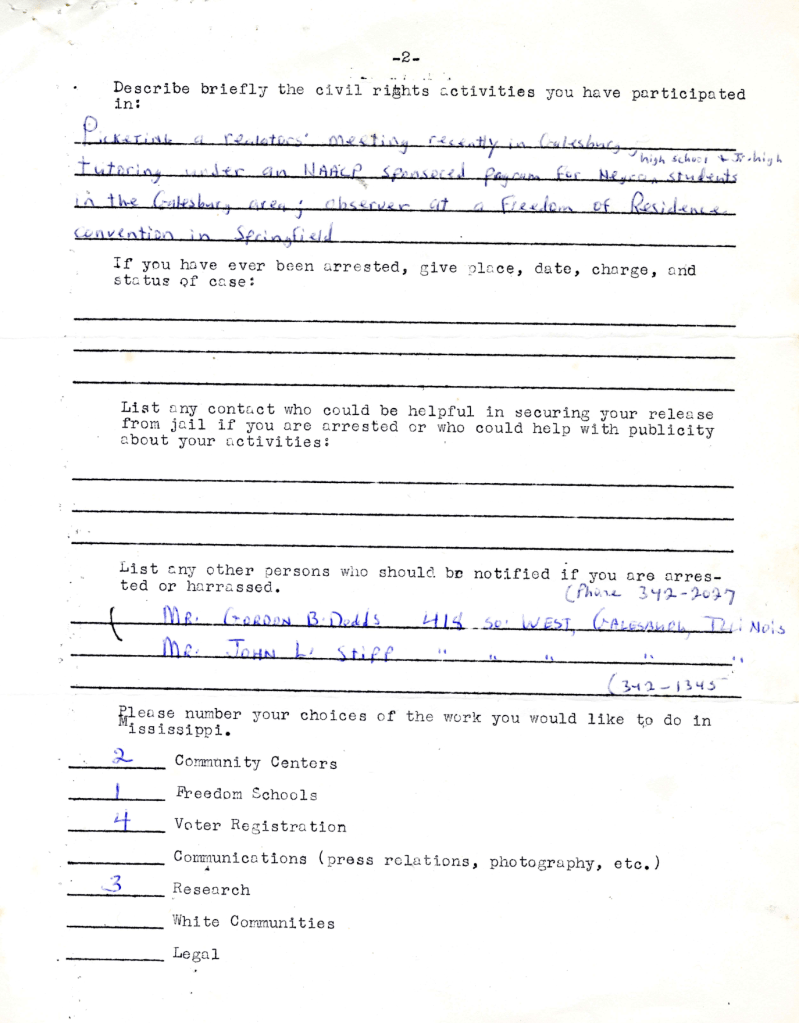 -2-
Describe briefly the civil rights activities you have participated
in:
Picketing a realators' meeting recently in Galesburg;
high school & Jr. high
tutoring under an NAACP sponsored program for Negro students
in the Galesburg area; observer at a Freedom of Residence
convention in Springfield
If you have ever been arrested, give place, date, charge, and
status of case:
List any contact who could be helpful in securing your release
from jail if you are arrested or who could help with publicity
about your activities:
List any other persons who should be notified if you are arres-
ted or harrassed.
(Phone 342-2027
( Mr. Gordon B. Dodds 418 so. West, Galesburg, Illinois
Mr. John L. Stipp " " " " "
(342-1345
Please number your choices of the work you would like to do in
Mississippi.
2 Community Centers
1 Freedom Schools
4 Voter Registration
Communications (press relations, photography, etc.)
3 Research
White Communities
Legal